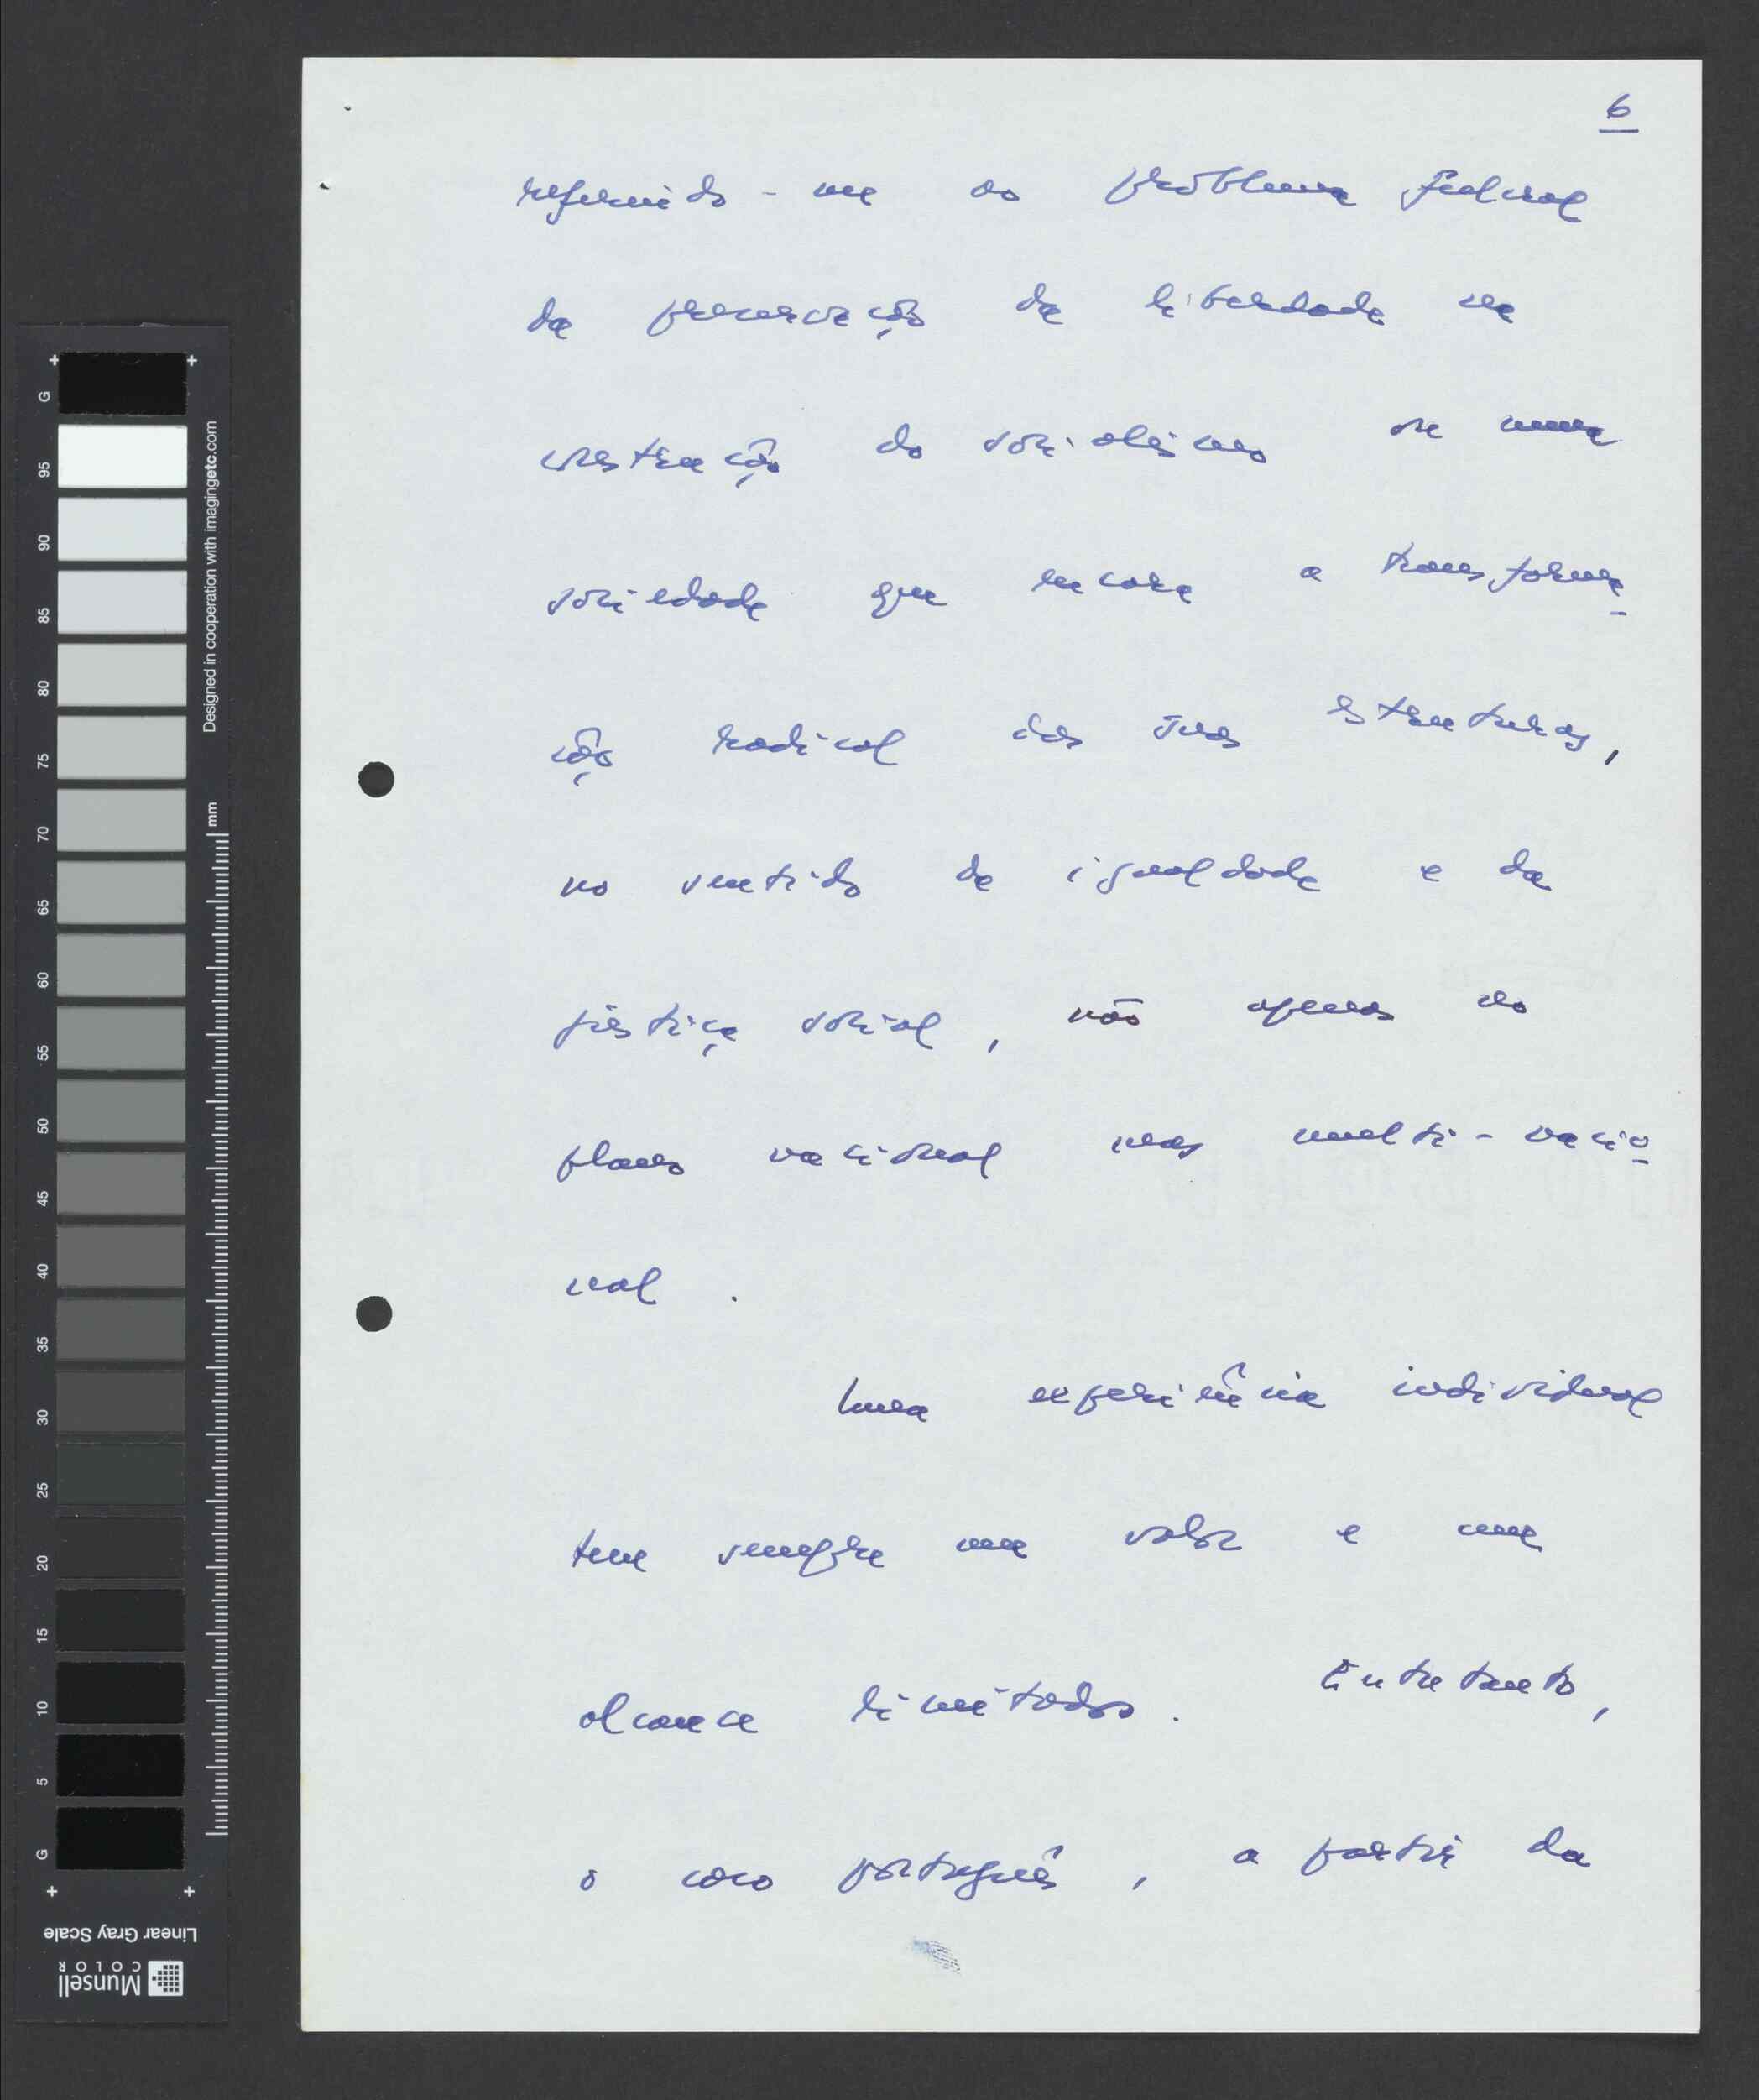 6
referindo-me ao problema fulcral
da preservação da liberdade na
construção do socialismo ou numa
sociedade que encara a transforma-
ção radical das suas estruturas,
no sentido da igualdade e da
justiça social, não apenas no
plano nacional mas multi-nacio-
nal.
Uma experiência individual
tem sempre um valor e um
alcance limitados. Entretanto,
o caso português, a partir da
G 95 90 85 80 75 70 65 60 55 50 45 40 35 30 25 20 15 10 5 G
Designed in cooperation with imagingetc.com
mm
Linear Gray Scale
Munsell
COLOR